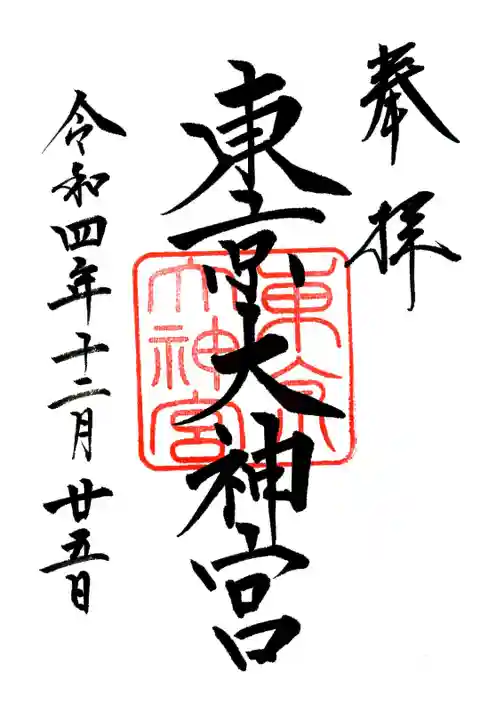 奉拝
東京大神宮
東京
大神宮
令和四年十二月廿五日